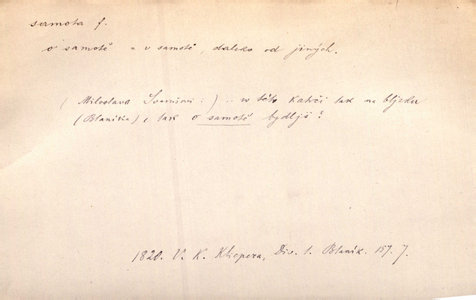 samota f.
o samotě = v samotě, daleko od jiných.
(Miloslava Svanšovi:) .. w této
tak na
(Blaníku), tak o samotě bydljš!
1820. V. K. Klicpera, Div. 1. Blaník. 157. 7.